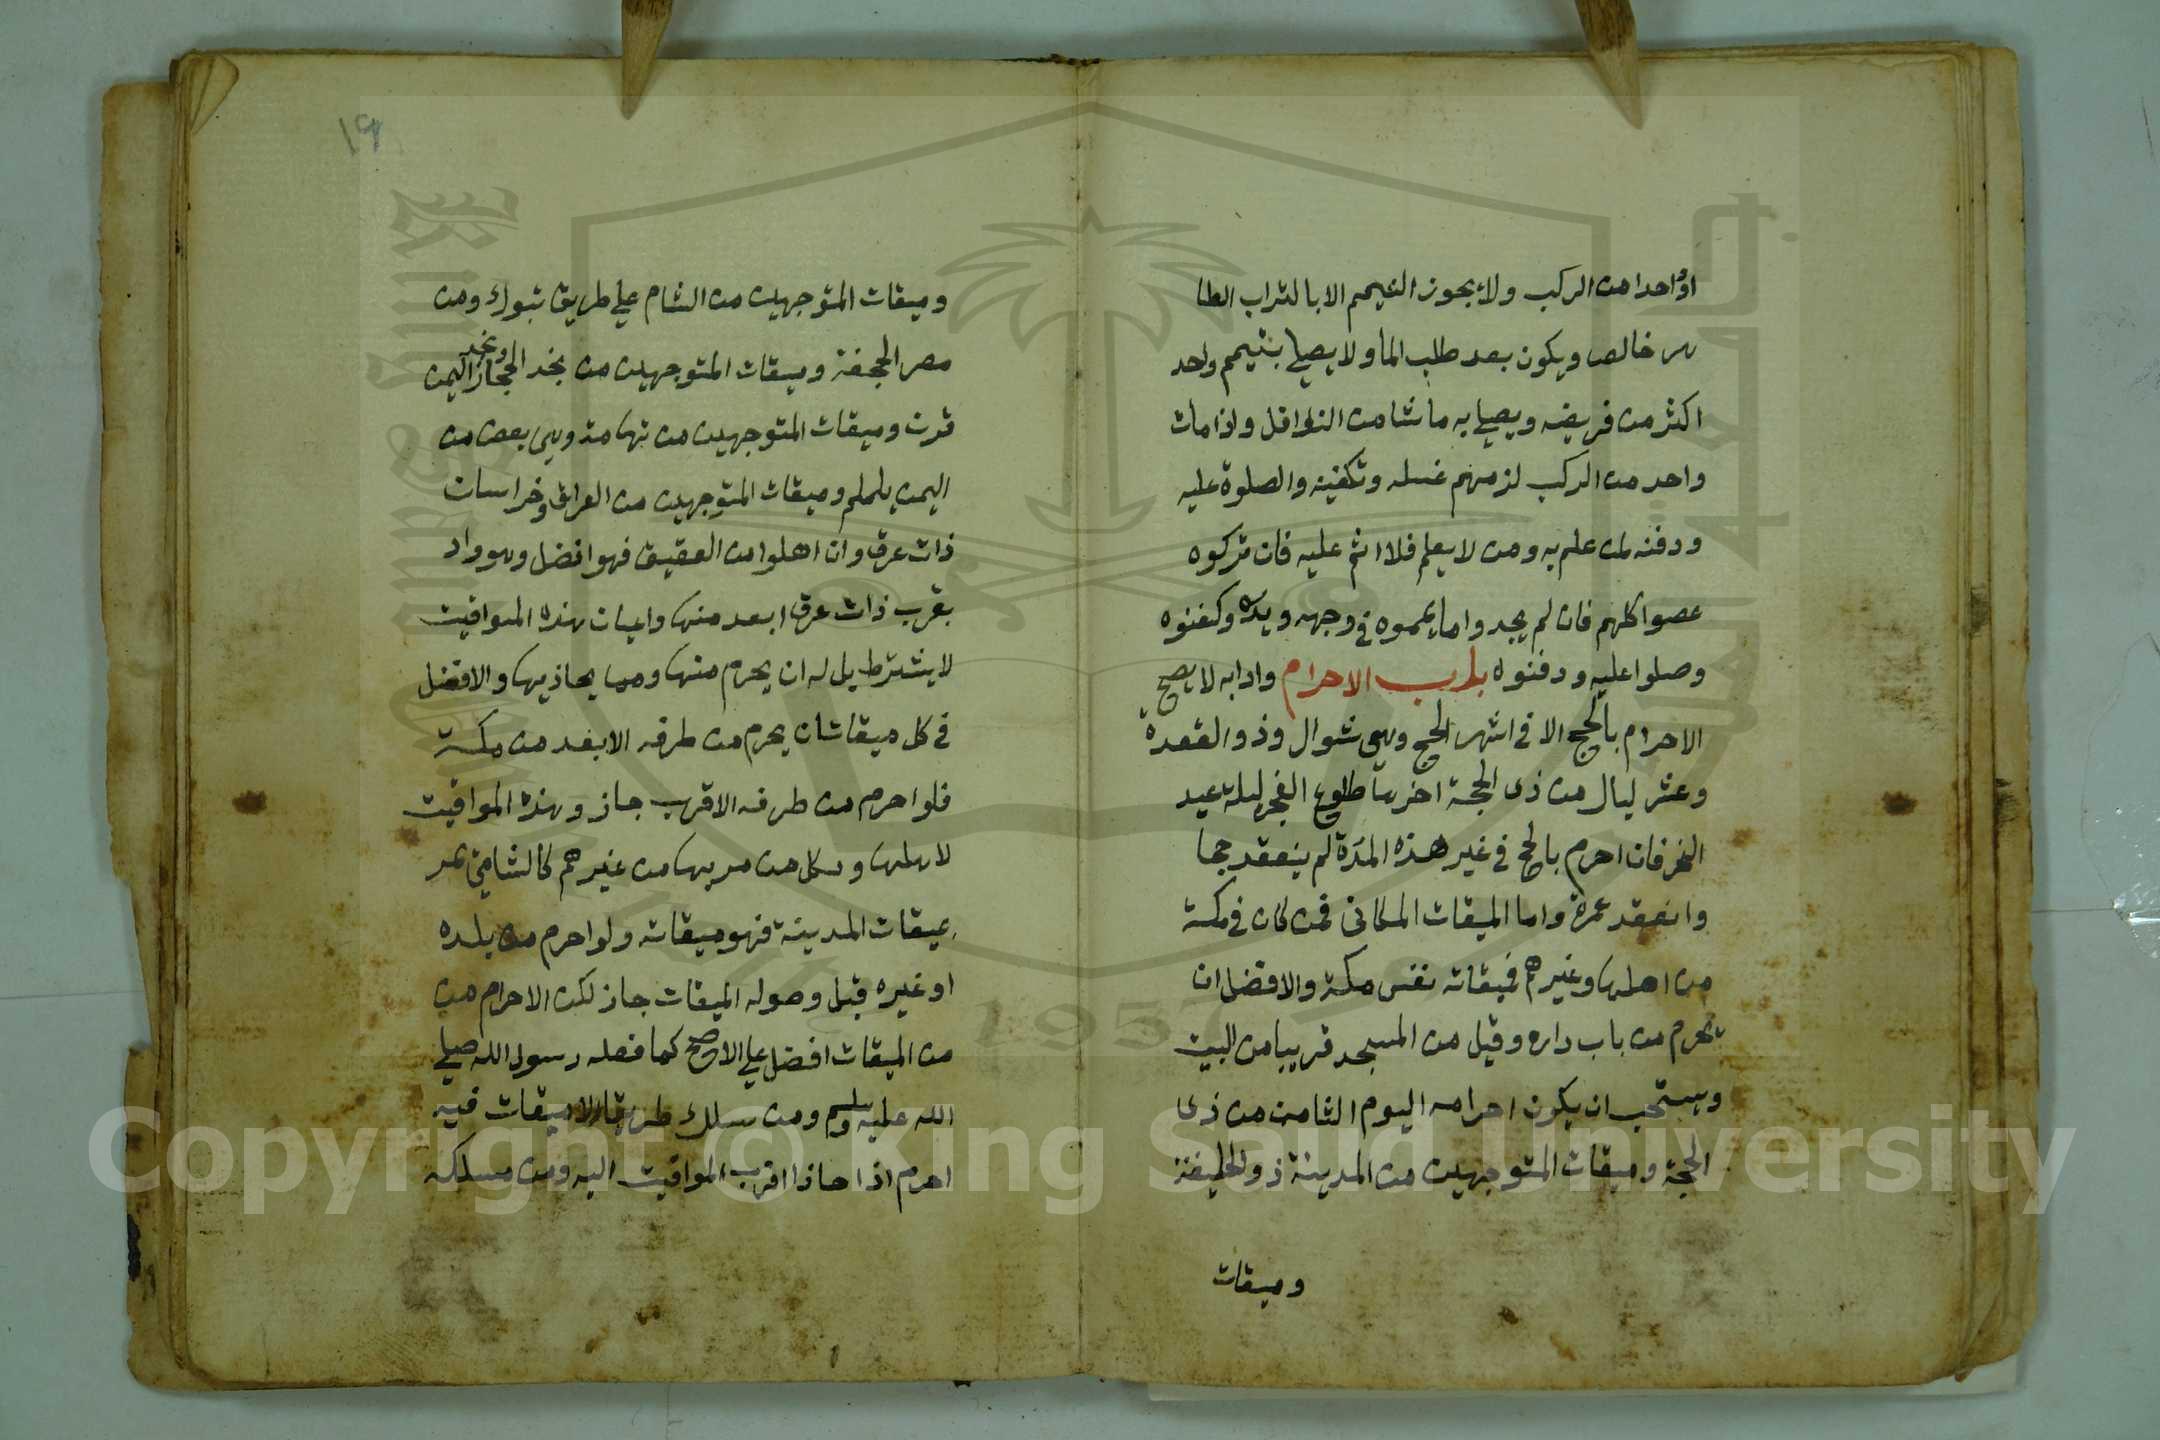 اوواحدا من الركب ولا يجوز التيمم الا بالتراب الطا
هر خالص ويكون بعد طلب الما ولا يصلي بتيمم واحد
اكثر من فريضه ويصلي به ما شا من النوافل واذا مات
واحد من الركب لزمهم غسله وتكفينه والصلوة عليه
ودفنه لمن علم به ومن لا يعلم فلا اثم عليه فان تركوه
عصوا كلهم فان لم يجدوا ما يمموه في وجهه ويديه وكفنوه
وصلوا عليه ودفنوه باب الاحرام وادابه لا يصح
الاحرام بالحج الا في اشهر الحج وهي شوال وذو القعدة
وعشر ليال من ذى الحجة اخرها طلوع الفجر ليلة عيد
النحر فان احرم بالحج في غير هذه المدة لم ينعقد حجا
وانعقد عمرة واما الميقات المكاني فمن كان في مكة
من اهلها وغيرهم فميقاته نفس مكة والافضل ان
يحرم من باب داره وقيل من المسجد قريبا من البيت
ويستحب ان يكون احرامه اليوم الثامن من ذى
الحجة وميقات المتوجهين من المدينة ذو الحليفة
وميقات
١٩
وميقات المتوجهين من الشام علي طريق تبوك ومن
مصر الجحفة وميقات المتوجهين من نجد الحجاز ونجد اليمن
قرن وميقات المتوجهين من تهامة وهي بعض من
اليمن يلملم وميقات المتوجهين من العراق وخراسان
ذات عرق وان اهلوا من العقيق فهو افضل وهو واد
بقرب ذات عرق ابعد منها واعيان هذه المواقيت
لا يشترط بل له ان يحرم منها ومما يحاذيها والافضل
في كل ميقات ان يحرم من طرفه الابعد من مكة
فلو احرم من طرفه الاقرب جاز وهذه المواقيت
لاهلها وكل من مر بها من غيرهم كالشامي يمر
بميقات المدينة فهو ميقاته ولو احرم من بلده
او غيره قبل وصوله الميقات جاز لكن الاحرام من
من الميقات افضل علي الاصح كما فعله رسول الله صلي
الله عليه وسلم ومن سلك طريقا لا ميقات فيه
احرم اذا حاذا اقرب المواقيت اليه ومن مسلكه
Copyright © King Saud University
1957